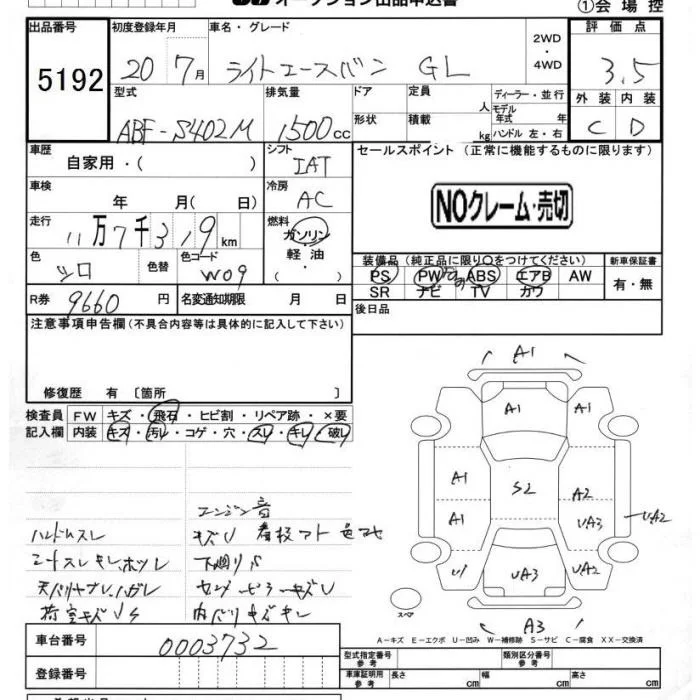 オークション出品申込書
①会場控
出品番号 初度登録年月 車名・グレード 2WD・4WD 評価点
5192 20 7月 ライトエースバン GL 3.5
型式 排気量 ドア 定員 人 ディーラー・並行 外装 内装
ABF-S402M 1500cc 形状 積載 kg モデル年式 年 ハンドル 左・右 C D
車歴 自家用・( ) シフト IAT セールスポイント (正常に機能するものに限ります)
車検 年 月( 日) 冷房 AC
NOクレーム・売切
走行 11万7千319km 燃料 ガソリン・軽油・(
色 シロ 色替 色コード W09
装備品 (純正品に限り○をつけてください) 新車保証書
PS PW ABS エアB AW 有・無
SR ナビ TV カワ
R券 9660円 名変通知期限 月 日 後日品
注意事項申告欄(不具合内容等は具体的に記入して下さい)
修復歴 有〔箇所 〕
検査員 FW キズ・飛石・ヒビ割・リペア跡・×要
記入欄 内装 キズ・汚レ・コゲ・穴・スレ・キレ・破レ
エンジン音
ハンドルスレ キズU 看板アト 色アセ
シートスレ キレ ホツレ 下廻りS
天バリヤブレ、ハガレ センターピラーキズU
荷室キズUS 内バリキズキレ
A1
A1 A1
A1 S2 A2
A1 UA3 UA2
U1 UA3 UA2
スペア
A3
A-キズ E-エクボ U-凹み W-補修跡 S-サビ C-腐食 XX-交換済
車台番号 0003732
型式指定番号 参考 類別区分番号 参考
登録番号 車庫証明用 参考 長さ cm 幅 cm 高さ cm